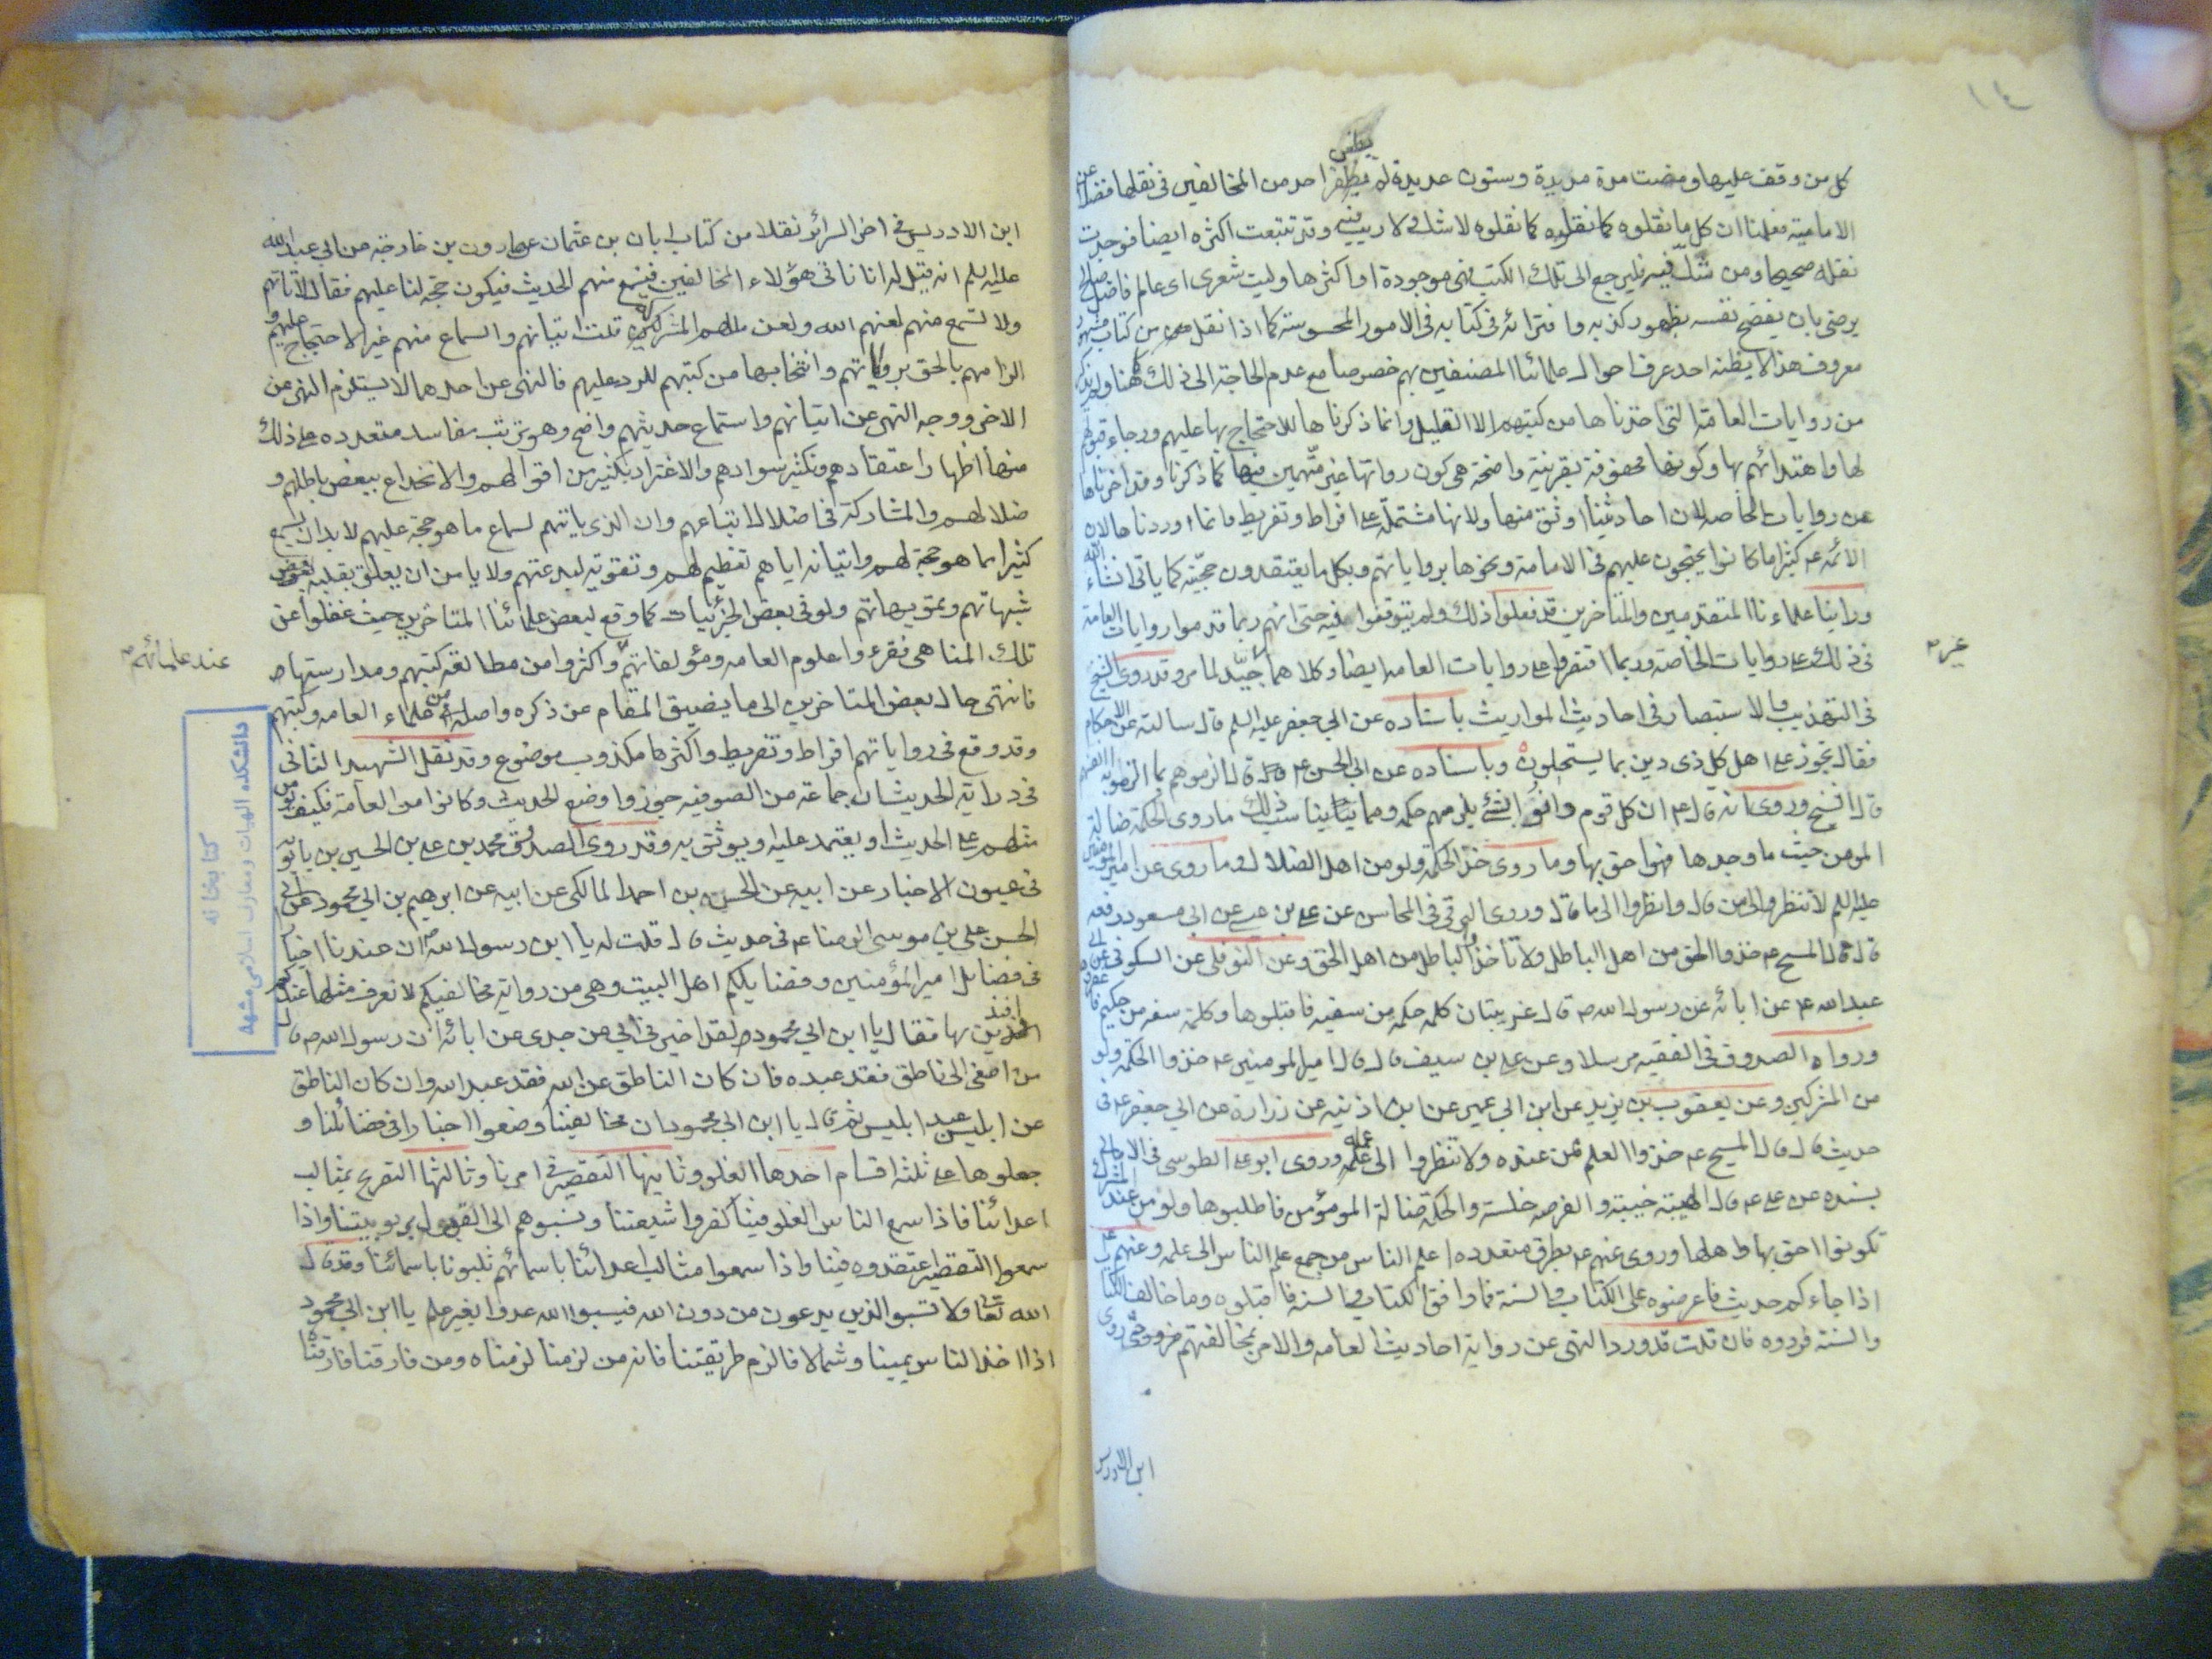 ١٤
كل من وقف عليها ومضت مدة مديدة وسنون عديدة لم يظفر احد من المخالفين في نقلها فضلا عن
الامامية فعلمنا ان كل ما نقلوه كما نقلوه كما نقلوه لا شك ولا ريب فيه وقد تتبعت اكثره ايضا فوجدت
نقله صحيحا ومن شك فيه فليرجع الى تلك الكتب فهي موجودة او اكثرها وليت شعرى اى عالم فاضل صالح
يرضى بان يفضح نفسه بظهور كذبه وافترائه في كتابه في الامور المحسوسة كما اذا نقل من كتاب مشهور
معروف هذا لا يظنه احد عرف احوال علمائنا المصنفين بهم خصوصا مع عدم الحاجة الى ذلك كما هنا ولم نذكر
من روايات العامة التي اخترناها من كتبهم الا القليل وانما ذكرناها للاحتجاج بها عليهم ورجاء قبولهم
لها واهتدائهم بها وكونها محفوفة بقرينة واضحة هي كون رواتها غير متهمين فيها كما ذكرنا وقد اخرناها
عن روايات الخاصة لان احاديثنا اوثق منها ولانها مشتملة على افراط وتفريط وانما اوردناها لان
الائمة ع كثيرا ما كانوا يحتجون عليهم في الامامة ونحوها برواياتهم وبكل ما يعتقدون حجيته كما ياتي انشاء الله
وراينا علماءنا المتقدمين والمتاخرين قد فعلوا ذلك ولم يتوقفوا فيه حتى انهم ربما قدموا روايات العامة
في ذلك على روايات الخاصة وربما اقتصروا على روايات العامة ايضا وكلاهما جيد لما مر وقد روى الشيخ
في التهذيب والاستبصار في احاديث المواريث باسناده عن ابي جعفر عليه السلم قال سالته عن الاحكام
فقال تجوز على اهل كل ذى دين بما يستحلون وباسناده عن ابي الحسن ع قال الزموهم بما الزموا به انفسهم
قال الشيخ وروى انه قال ع ان كل قوم دانوا بشئ يلزمهم حكمه ومما يناسب ذلك ما روى الحكمة ضالة
المومن حيث ما وجدها فهو احق بها وما روى خذ الحكمة ولو من اهل الضلال وما روى عن امير المومنين
عليه السلم لا تنظروا الى من قال وانظروا الى ما قال وروى البرقي في المحاسن عن علي بن عيسى عن ابن مسعود رفعه
قال قال المسيح ع خذوا الحق من اهل الباطل ولا تاخذوا الباطل من اهل الحق وعن النوفلي عن السكوني عن ابي
عبد الله ع عن ابائه عن رسول الله ص قال غريبتان كلمة حكمة من سفيه فاقبلوها وكلمة سفه من حكيم فاغفروها
ورواه الصدوق في الفقيه مرسلا وعن علي بن سيف قال قال امير المومنين ع خذوا الحكمة ولو
من المشركين وعن يعقوب بن يزيد عن ابن ابي عمير عن ابن اذينة عن زرارة عن ابي جعفر ع في
حديث قال قال المسيح ع خذوا العلم ممن عنده ولا تنظروا الى عمله وروى ابو علي الطوسي في الامالي
بسنده عن علي ع قال الهيبة خيبة والفرصة خلسة والحكمة ضالة المومؤمن فاطلبوها ولو من عند المشرك
تكونوا احق بها واهلها وروى عنهم ع بطرق متعدده اعلم الناس من جمع علم الناس الى علمه وعنهم ع
اذا جاءكم حديث فاعرضوه على الكتاب والسنة فما وافق الكتاب والسنه فاقبلوه وما خالف الكتاب
والسنة فردوه فان قلت قد ورد النهى عن رواية احاديث العامه والامر بمخالفتهم فروى
ابن الادريس
ابن الادريس في اخر السرائر نقلا من كتاب ابان بن عثمان عن هارون بن خارجة عن ابي عبد الله
عليه السلم انه قيل له انا ناتي هؤلاء المخالفين فنسمع منهم الحديث فيكون حجة لنا عليهم فقال لا تاتهم
ولا تسمع منهم لعنهم الله ولعن مللهم المشركة قلت اتيانهم والسماع منهم غير الاحتجاج عليهم و
الزامهم بالحق برواياتهم وانتخابها من كتبهم للرد عليهم فالنهى عن احدهما لا يستلزم النهى عن
الاخر ووجه النهى عن اتيانهم واستماع حديثهم واضح وهو ترتب مفاسد متعدده على ذلك
منها اظهار اعتقادهم وتكثير سوادهم والاغترار بكثير من اقوالهم والانخداع ببعض باطلهم و
ضلالهم والمشاركة في اضلال اتباعهم وان الذى ياتيهم لسماع ما هو حجة عليهم لا بد ان يسمع
كثيرا مما هو حجة لهم واتيانه اياهم تعظيم لهم وتقوية لبدعتهم ولا يامن ان يعلق بقلبه بعض
شبهاتهم وتمويهاتهم ولو في بعض الجزئيات كما وقع لبعض علمائنا المتاخرين حيث غفلوا عن
تلك المناهى فقرءوا علوم العامه ومؤلفاتهم واكثروا من مطالعة كتبهم ومدارستها
عند علمائهم
فانتهى حال بعض المتاخرين الى ما يضيق المقام عن ذكره واصله من علماء العامه وكتبهم
وقد وقع في رواياتهم افراط وتفريط واكثرها مكذوب موضوع وقد نقل الشهيد الثاني
في دراية الحديث ان جماعة من الصوفيه جوزوا وضع الحديث وكانوا من العامة فكيف يؤمن
مثلهم على الحديث او يعتمد عليه ويوثق به وقد روى الصدوق محمد بن علي بن الحسين بن بابويه
في عيون الاخبار عن ابيه عن الحسن بن احمد المالكي عن ابيه عن ابرهيم بن ابي محمود عن ابي
الحسن علي بن موسى الرضا ع في حديث قال قلت له يا ابن رسول الله ص ان عندنا اخبارا
في فضائل امير المؤمنين وفضايلكم اهل البيت وهي من رواية مخالفيكم لا نعرف مثلها عندكم
افندين بها فقال يا ابن ابي محمود لقد اخبرني ابي عن جدى عن ابائه ان رسول الله ص قال
من اصغى الى ناطق فقد عبده فان كان الناطق عن الله فقد عبد الله وان كان الناطق
عن ابليس فقد عبد ابليس ثم قال يا ابن ابي محمود ان مخالفينا وضعوا اخبارا في فضائلنا و
جعلوها على ثلثة اقسام احدها الغلو وثانيها التقصير في امرنا وثالثها التصريح بمثالب
اعدائنا فاذا سمع الناس الغلو فينا كفروا شيعتنا ونسبوهم الى القول بربوبيتنا واذا
سمعوا التقصير اعتقدوه فينا واذا سمعوا مثالب اعدائنا باسمائهم ثلبونا باسمائنا وقد قال
الله تعا ولا تسبوا الذين يدعون من دون الله فيسبوا الله عدوا بغير علم يا ابن ابي محمود
اذا اخذ الناس يمينا وشمالا فالزم طريقتنا فانه من لزمنا لزمناه ومن فارقنا فارقناه
دانشكده الهيات ومعارف اسلامى مشهد
كتابخانه